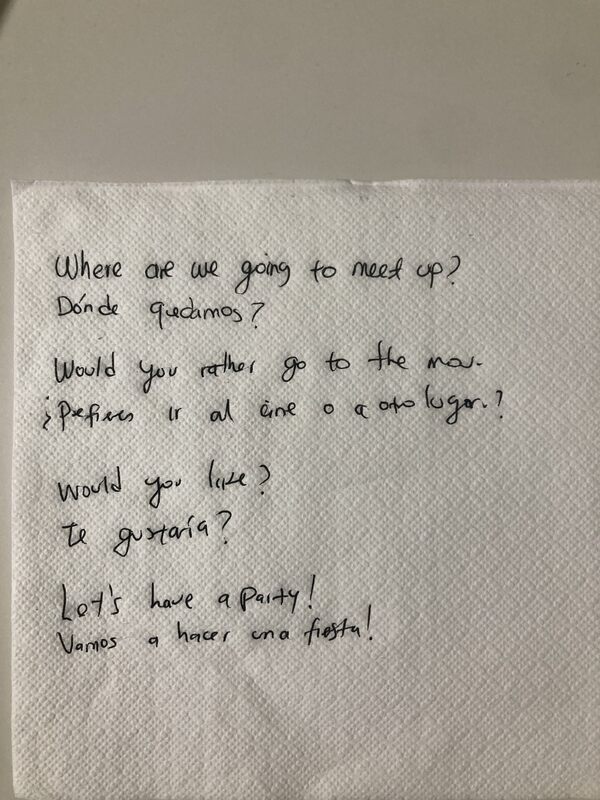 Where are we going to meet up?
Dónde quedamos?
Would you rather go to the mov.
¿Prefieres ir al cine o a otro lugar.?
Would you like?
te gustaría?
Let's have a party!
Vamos a hacer una fiesta!